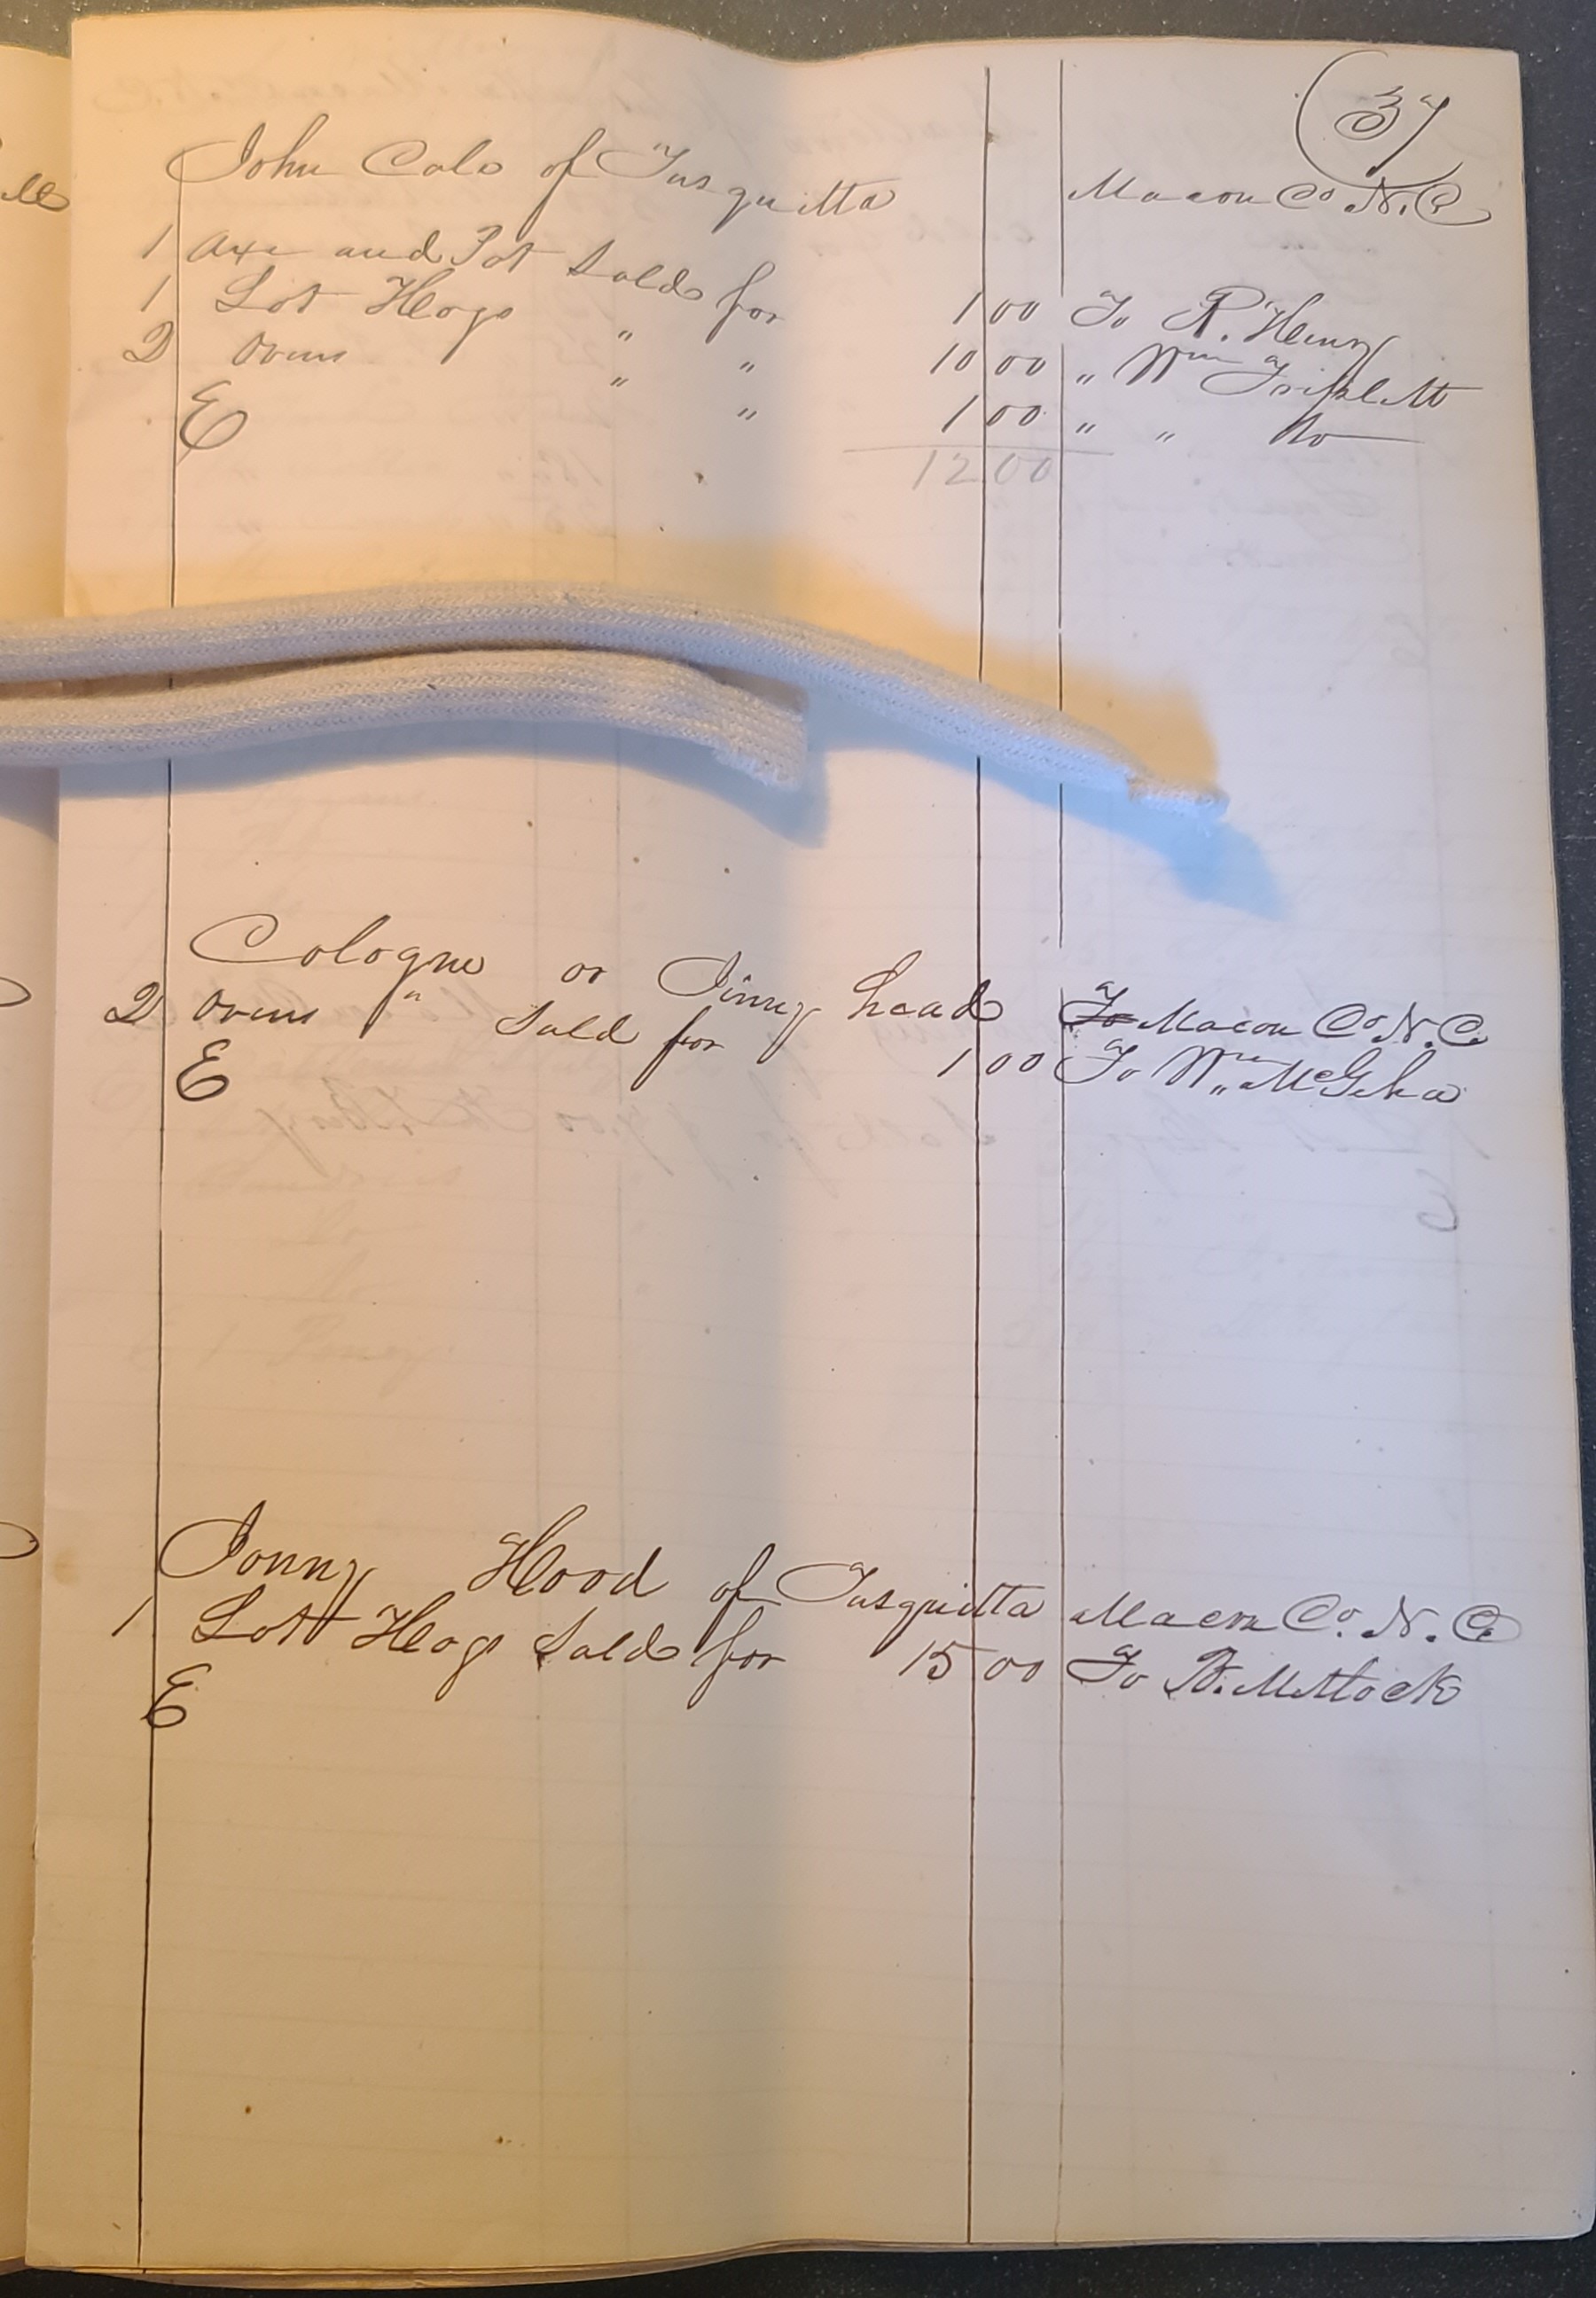 37
John Cole of Tusquitta Macon Co N.C
1 Axe and Pot Sold for 1 00 To R. Henry
1 Lot Hogs " " 10 00 " Wm Triplett
2 Ovens " " 1 00 " " Do
E
12 00
Cologne or Jinny head To Macon Co N.C.
2 Ovens " Sold for 1 00 To Wm McGeha
E
Jonny Hood of Tusquitta Macon Co. N.C.
1 Lott Hogs Sold for 15 00 To B. Mattock
E